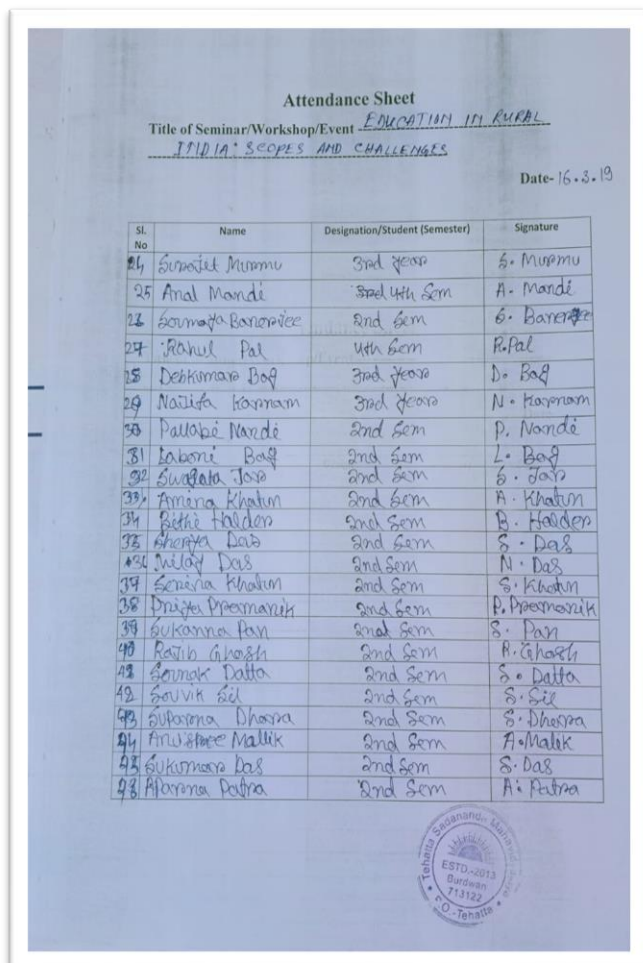 Attendance Sheet
Title of Seminar/Workshop/Event EDUCATION IN RURAL
INDIA: SCOPES AND CHALLENGES
Date- 16.3.19
Sl. No Name Designation/Student (Semester) Signature
24 Surojet Murmu 3rd year S. Murmu
25 Anal Mandi 4th Sem A. Mandi
26 Soumaya Banerjee 2nd Sem S. Banerjee
27 Rahul Pal 4th Sem R.Pal
28 Debkumar Bag 3rd year D. Bag
29 3rd year N.
30 Pallabi Nandi 2nd Sem P. Nandi
31 Laboni Bag 2nd Sem L. Bag
32 Swagata 2nd Sem S.
33 Amina Khatun 2nd Sem A. Khatun
34 Bithi Halder 2nd Sem B. Halder
35 Sherya Das 2nd Sem S. Das
36 Das 2nd Sem N. Das
37 Serina Khatun 2nd Sem S. Khatun
38 Pramanik 2nd Sem P. Pramanik
39 Sukanna Pan 2nd Sem S. Pan
40 Rajib Ghosh 2nd Sem R. Ghosh
41 Sounak Datta 2nd Sem S. Datta
42 Souvik Sil 2nd Sem S. Sil
43 Suparna Dhara 2nd Sem S. Dhara
44 Mallik 2nd Sem A. Malik
45 Sukumar Das 2nd Sem S. Das
Aparna Patra 2nd Sem A. Patra
Tehatta Sadananda
ESTD.-2013
Burdwan
713122
P.O.-Tehatta